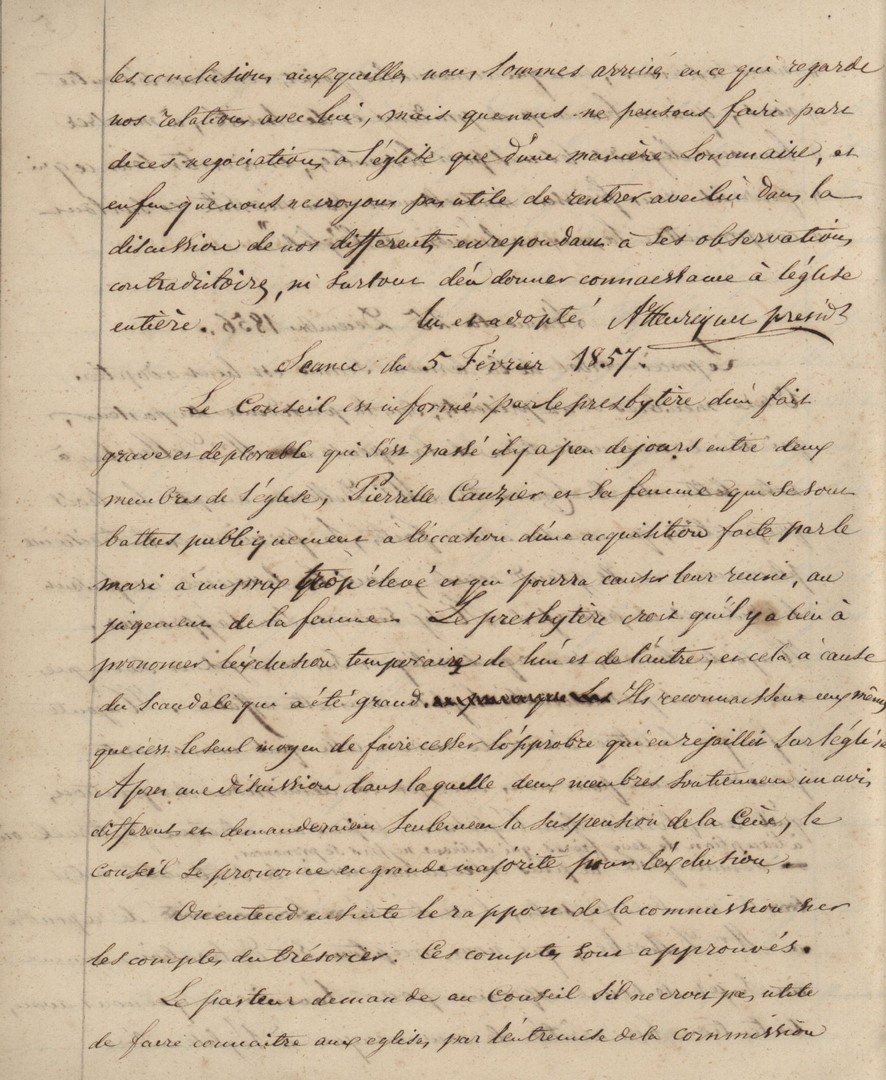 les conclusions auxquelles nous sommes arrivés en ce qui regarde
nos relations avec lui, mais que nous ne pensons faire part
de ces negociations à l'église que d'une manière sommaire, et
enfin que nous ne croyons pas utile de rentrer avec lui dans la
discussion de nos differents en repondant à ses observations
contradictoires, ni surtout d'en donner connaissance à l'église
entière. lu et adopté présidt
Seance du 5 Février 1857
Le Conseil est informé par le presbytère d'un fait
grave et deplorable qui s'est passé il y a peu de jours entre deux
membres de l'église, Pierrille Cauzier et sa femme qui se sont
battus publiquement à l'occasion d'une acquisition faite par le
mari à un prix trop élevé et qui pourra causer leur ruine, au
jugement de la femme. Le presbytère croit qu'il y a lieu à
prononcer l'exclusion temporaire de l'un et de l'autre, et cela à cause
du scandale qui a été grand. Ils reconnaissent eux mêmes
que c'est le seul moyen de faire cesser l'opprobre qui en rejaillit sur l'église
Apres une discussion dans laquelle deux membres soutiennent un avis
different et demanderaient seulement la suspension de la Cène, le
conseil se prononce en grande majorité pour l'exclusion.
On entend ensuite le rapport de la commission sur
les comptes du trésorier. Ces comptes sont approuvés.
Le pasteur demande au Conseil s'il ne croit pas utile
de faire connaitre aux eglises par l'entremise de la commission